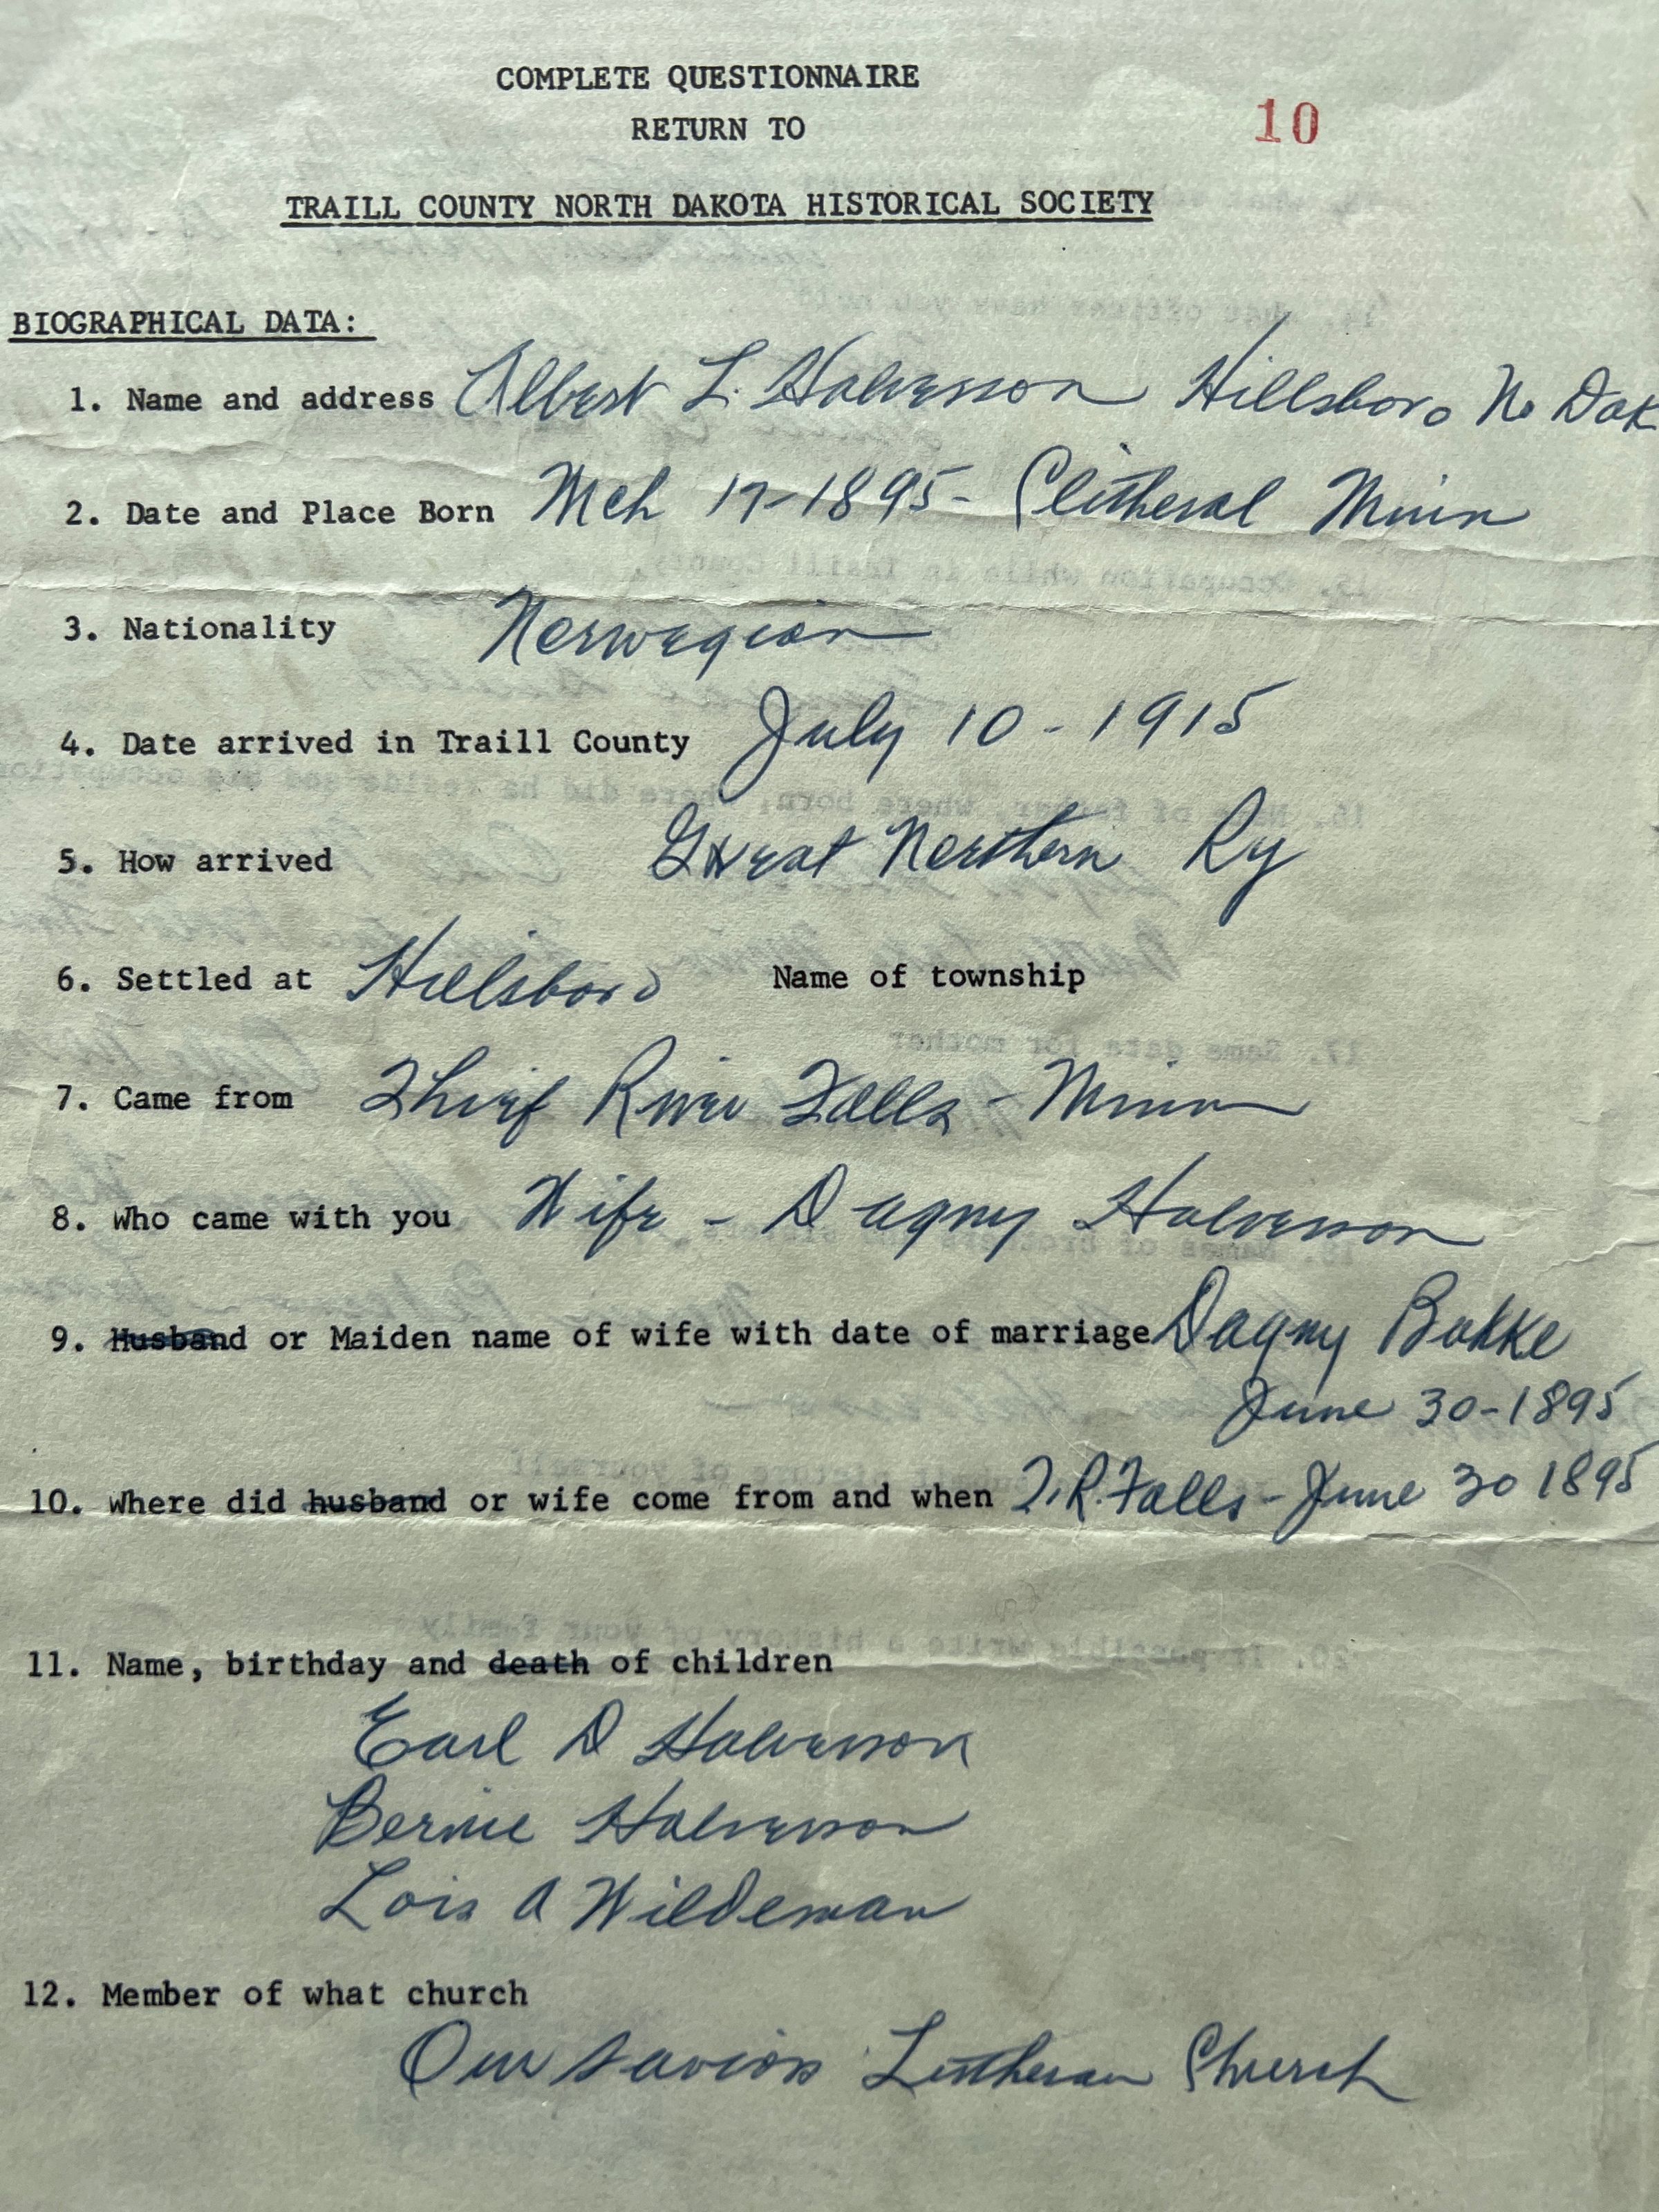 COMPLETE QUESTIONNAIRE
RETURN TO
10
TRAILL COUNTY NORTH DAKOTA HISTORICAL SOCIETY
BIOGRAPHICAL DATA:
1. Name and address Albert L. Halverson Hillsboro No Dak
2. Date and Place Born Mch 17-1895- Clitheral Minn
3. Nationality Norwegian
4. Date arrived in Traill County July 10-1915
5. How arrived Great Northern Ry
6. Settled at Hillsboro Name of township
7. Came from Thief River Falls - Minn
8. Who came with you Wife - Dagny Halverson
9. Husband or Maiden name of wife with date of marriage Dagny Bakke
June 30-1895
10. Where did husband or wife come from and when T.R. Falls - June 30 1895
11. Name, birthday and death of children
Earl D Halverson
Bernie Halverson
Lois A Wildeman
12. Member of what church
Our Saviors Lutheran Church